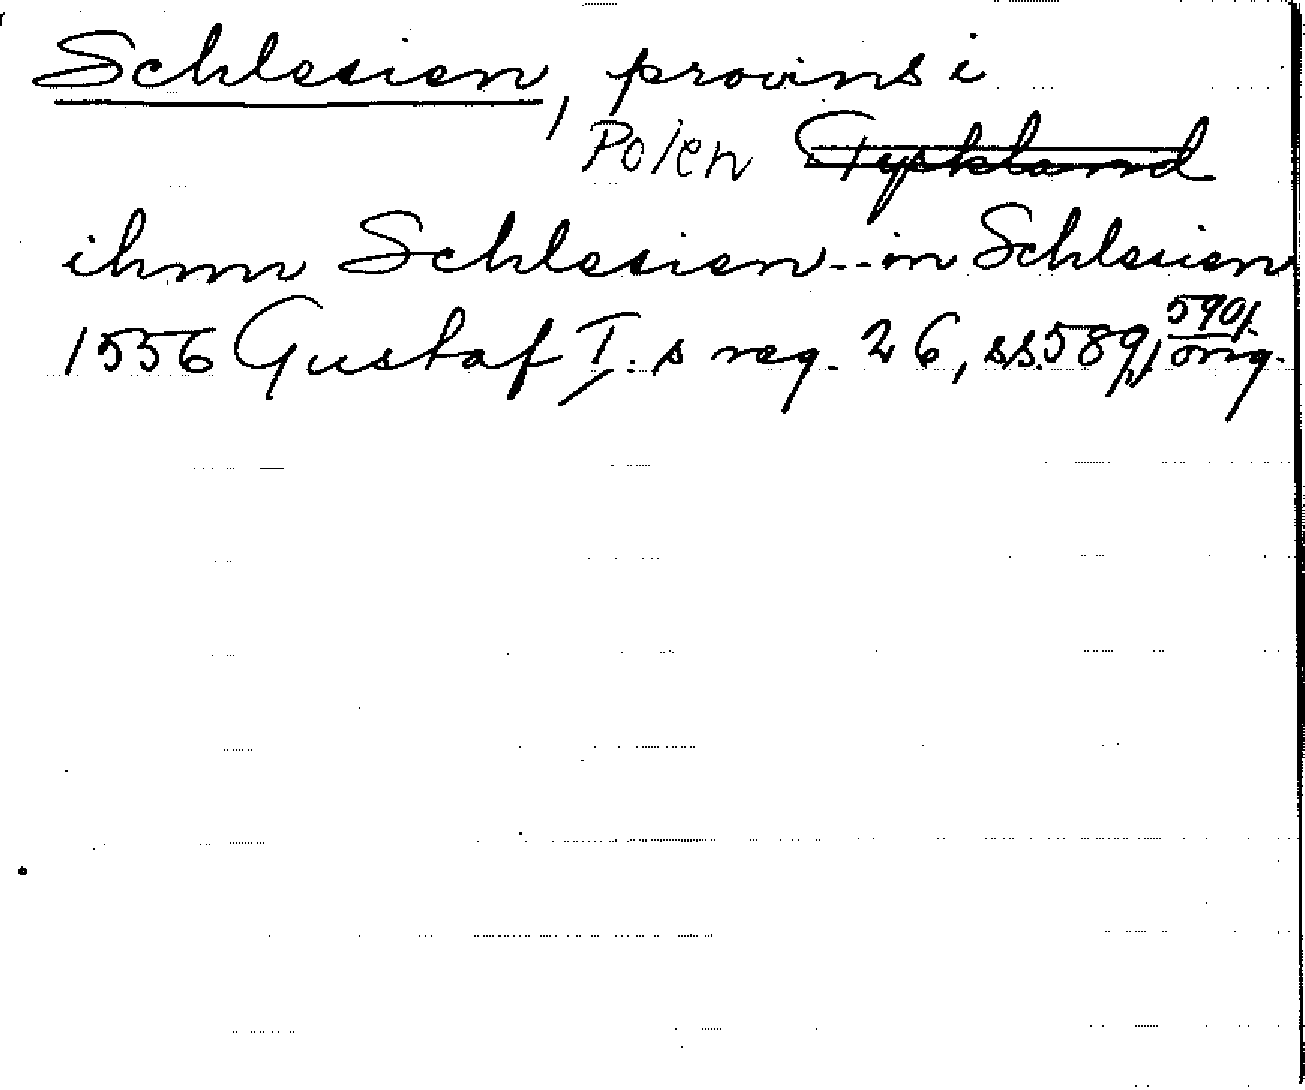 Schlesien, provins i
Polen Tyskland
ihnn Schlesien -- in Schlesien
1556 Gustaf I:s reg. 26, ss. 589, 590/. orig.